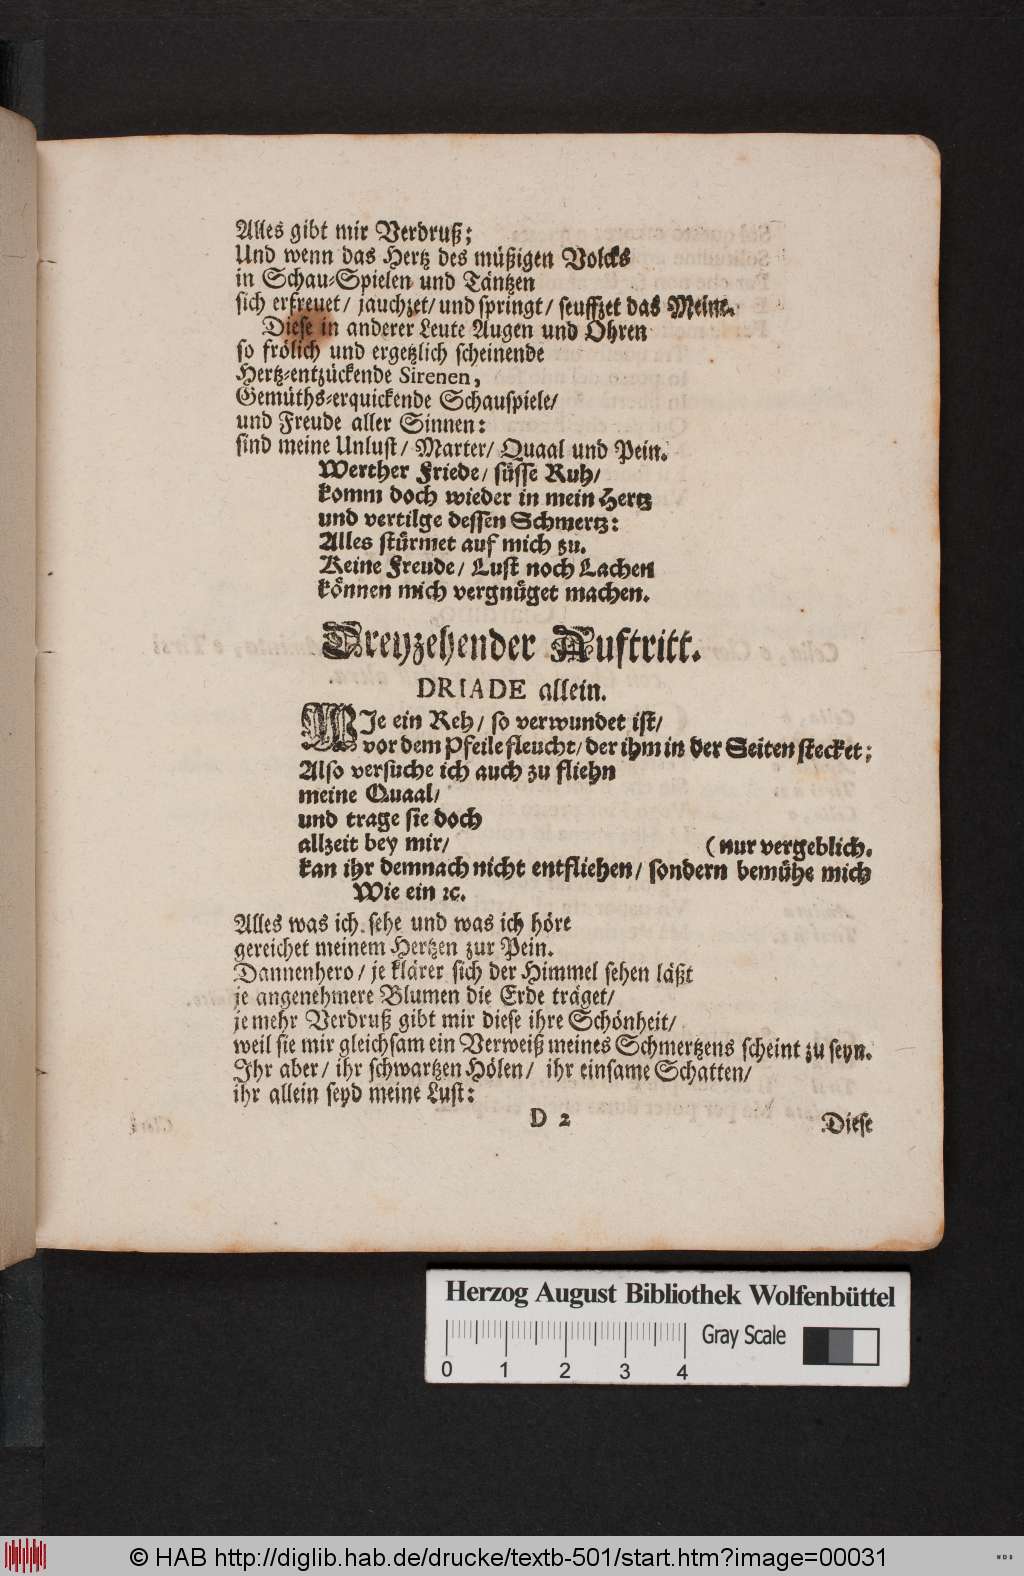 Alles gibt mir Verdruß;
Und wenn das Hertz des müßigen Volcks
in Schau-Spielen und Täntzen
sich erfreuet/ jauchzet/ und springt/ seuffzet das Meine.
Diese in anderer Leute Augen und Ohren
so frölich und ergetzlich scheinende
Hertz-entzückende Sirenen,
Gemüths-erquickende Schauspiele/
und Freude aller Sinnen:
sind meine Unlust/ Marter/ Quaal und Pein.
Werther Friede/ süsse Ruh/
komm doch wieder in mein Hertz
und vertilge dessen Schmertz:
Alles stürmet auf mich zu.
Keine Freude/ Lust noch Lachen
können mich vergnüget machen.
Dreyzehender Auftritt.
DRIADE allein.
WJe ein Reh/ so verwundet ist/
vor dem Pfeile fleucht/ der ihm in der Seiten stecket;
Also versuche ich auch zu fliehn
meine Quaal/
und trage sie doch
allzeit bey mir/ (nur vergeblich.
kan ihr demnach nicht entfliehen/ sondern bemühe mich
Wie ein ꝛc.
Alles was ich sehe und was ich höre
gereichet meinem Hertzen zur Pein.
Dannenhero/ je klärer sich der Himmel sehen läßt
je angenehmere Blumen die Erde träget/
je mehr Verdruß gibt mir diese ihre Schönheit/
weil sie mir gleichsam ein Verweiß meines Schmertzens scheint zu seyn.
Jhr aber/ ihr schwartzen Hölen/ ihr einsame Schatten/
ihr allein seyd meine Lust:
D 2 Diese
Herzog August Bibliothek Wolfenbüttel
Gray Scale
0 1 2 3 4
© HAB http://diglib.hab.de/drucke/textb-501/start.htm?image=00031